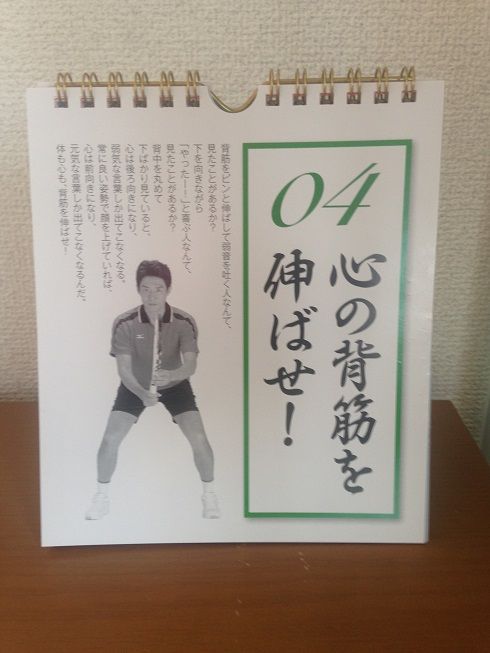 04
心の背筋を
伸ばせ！
背筋をピンと伸ばして弱音を吐く人なんて、
見たことがあるか？
下を向きながら
「やったーー！」と喜ぶ人なんて、
見たことがあるか？
背中を丸めて
下ばかり見ていると、
心は後ろ向きになり、
弱気な言葉しか出てこなくなる。
常に良い姿勢で顔を上げていれば、
心は前向きになり、
元気な言葉しか出てこなくなるんだ。
体も心も、背筋を伸ばせ！